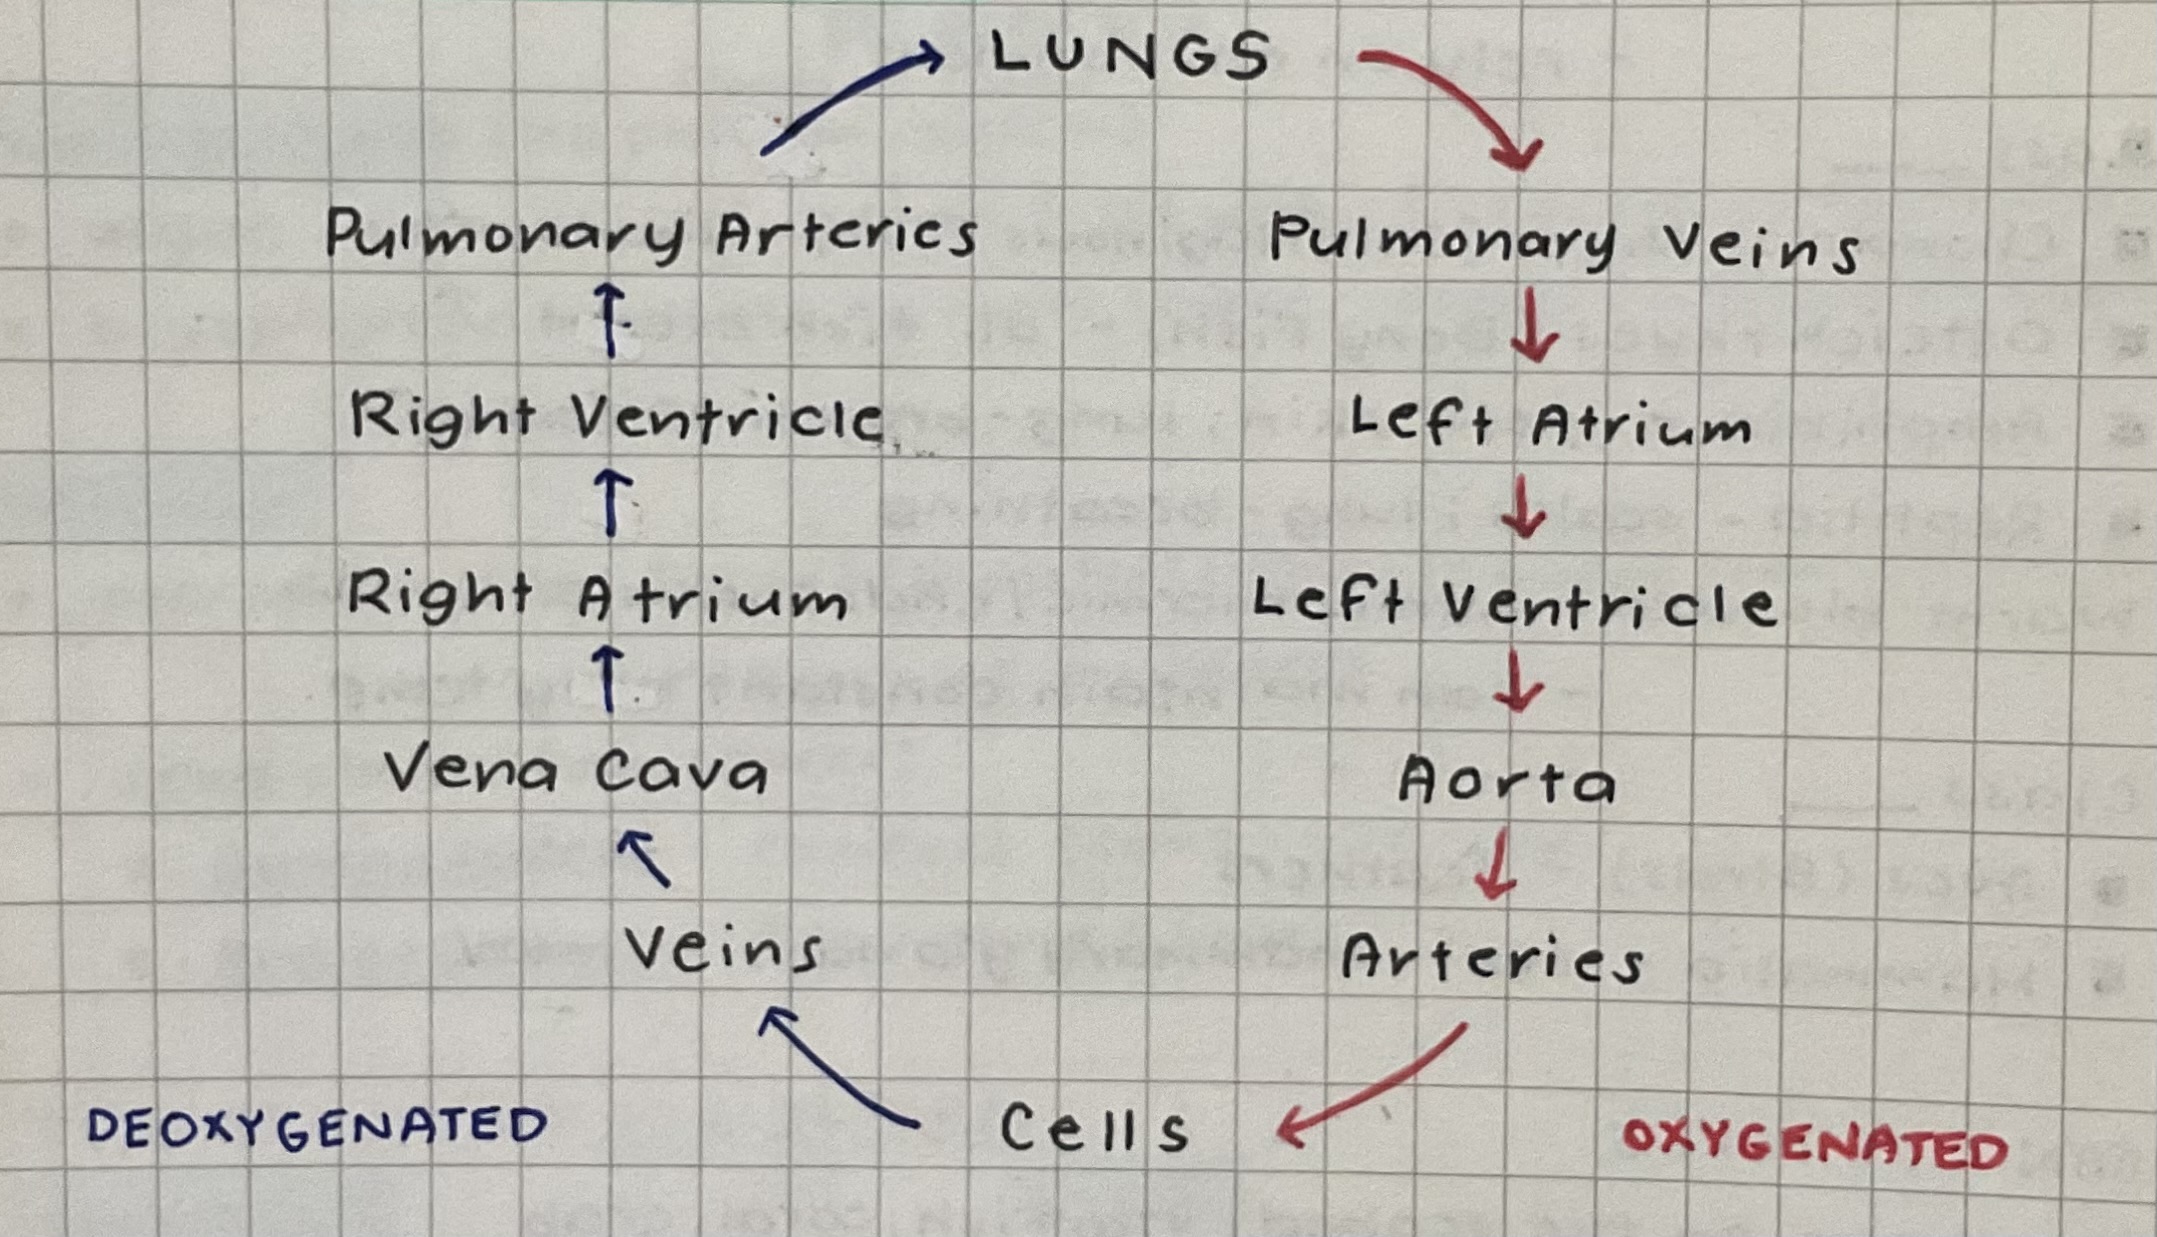 LUNGS
Pulmonary Arteries Pulmonary Veins
Right Ventricle Left Atrium
Right Atrium Left Ventricle
Vena Cava Aorta
Veins Arteries
DEOXYGENATED Cells OXYGENATED